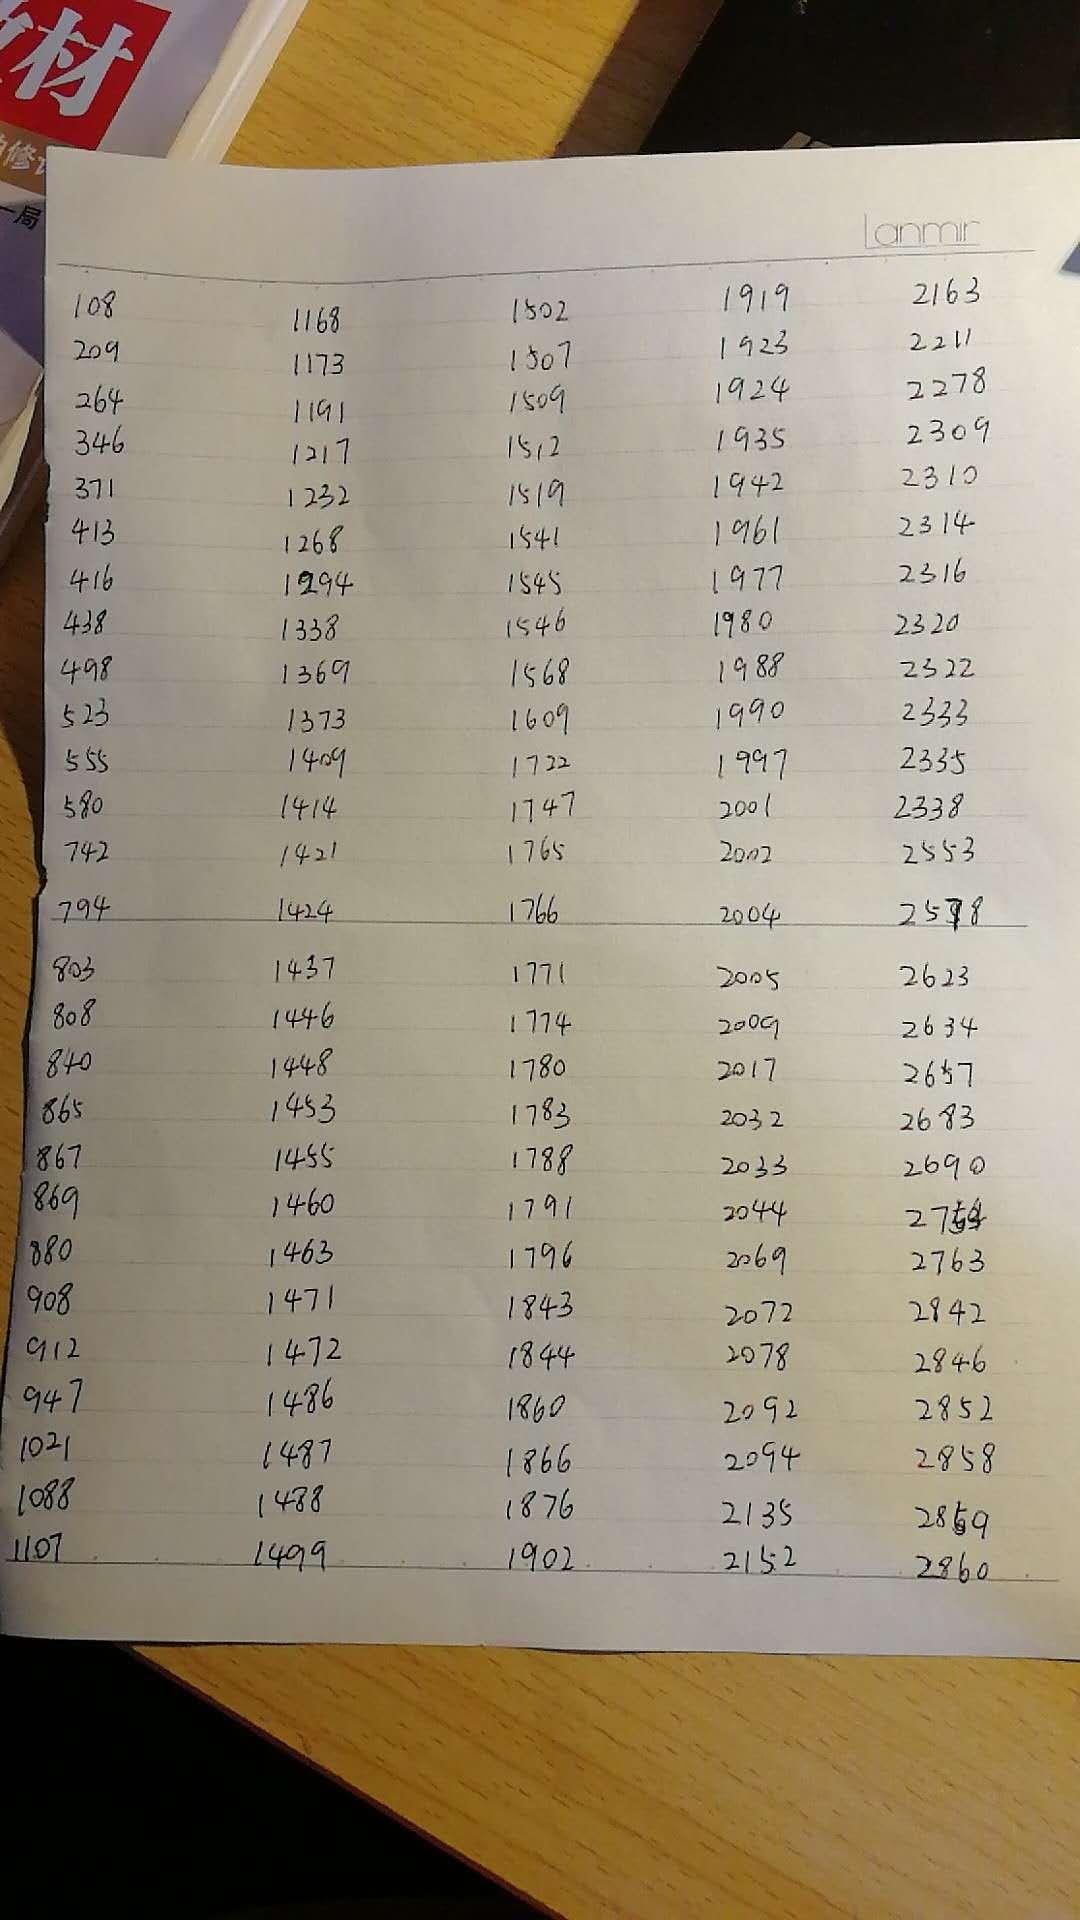 材
修
一局
Lanmir
108 1168 1502 1919 2163
209 1173 1507 1923 2211
264 1191 1509 1924 2278
346 1217 1512 1935 2309
371 1232 1519 1942 2310
413 1268 1541 1961 2314
416 1294 1545 1977 2316
438 1338 1546 1980 2320
498 1369 1568 1988 2322
523 1373 1609 1990 2333
555 1409 1722 1997 2335
580 1414 1747 2001 2338
742 1421 1765 2002 2553
794 1424 1766 2004
803 1437 1771 2005 2623
808 1446 1774 2009 2634
840 1448 1780 2017 2657
865 1453 1783 2032 2683
867 1455 1788 2033 2690
869 1460 1791 2044
880 1463 1796 2069 2763
908 1471 1843 2072 2842
912 1472 1844 2078 2846
947 1486 1860 2092 2852
1021 1487 1866 2094 2858
1088 1488 1876 2135 2859
1107 1499 1902 2152 2860